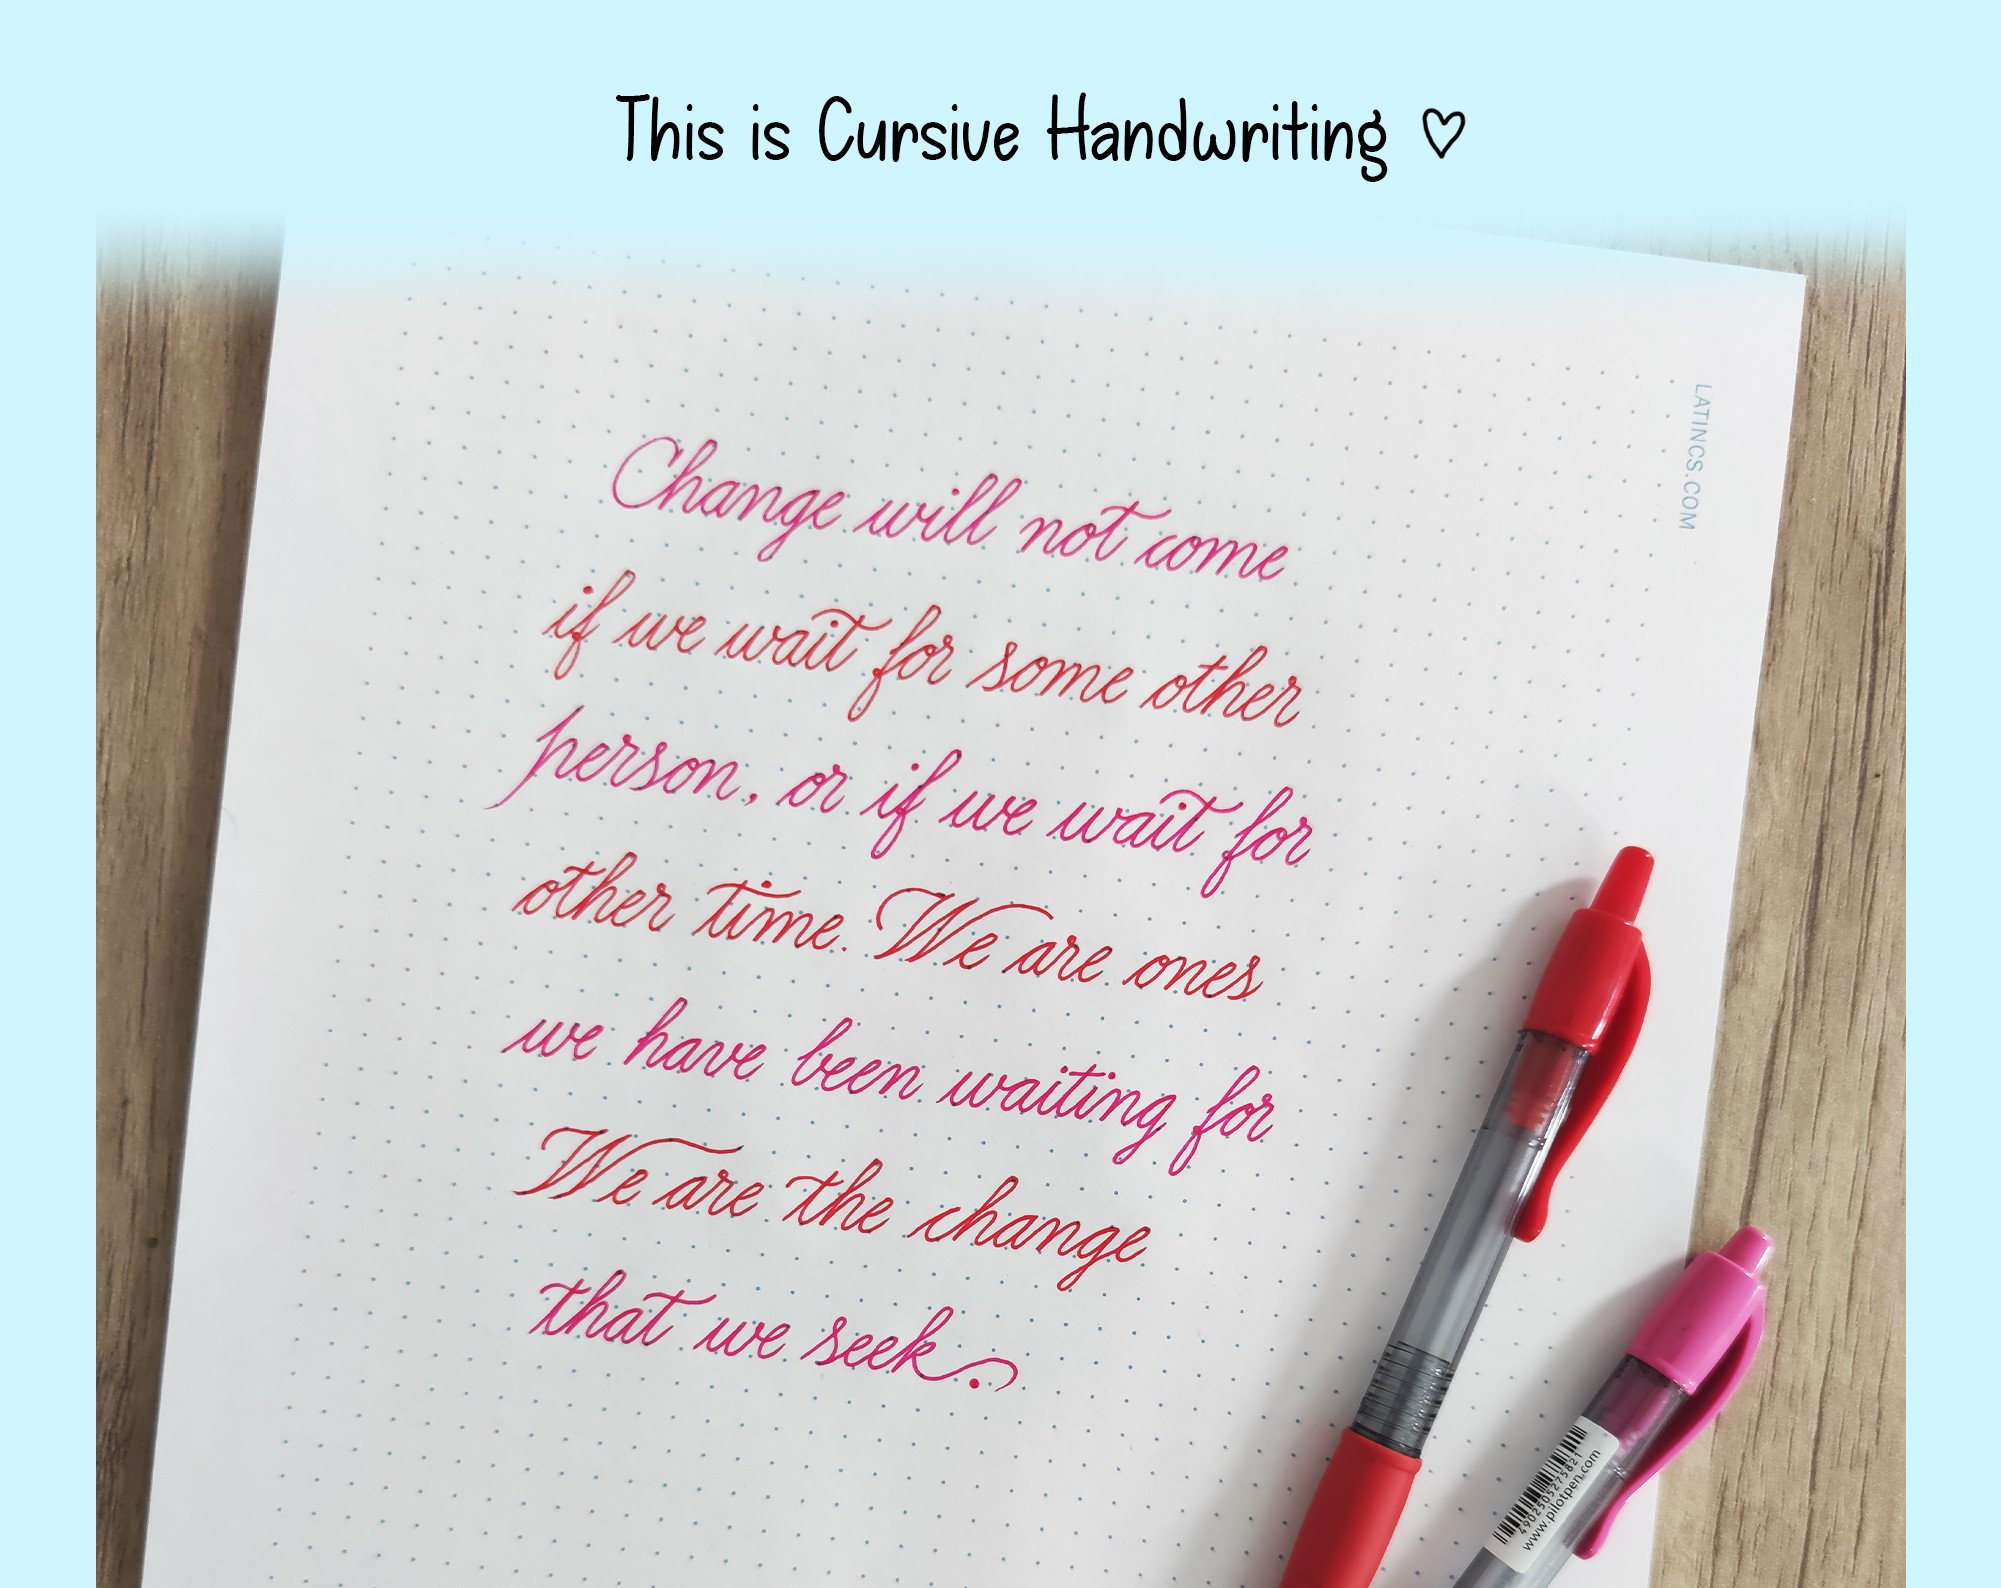 This is Cursive Handwriting ♡
LATINCS.COM
Change will not come
if we wait for some other
person, or if we wait for
other time. We are ones
we have been waiting for
We are the change
that we seek.
4902505275821
www.pilotpen.com